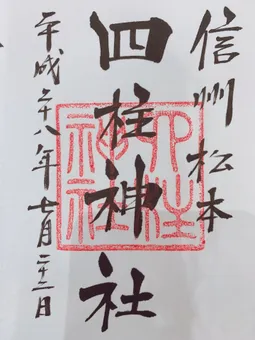 信州松本
四柱神社
平成二十八年七月二十三日
四柱神社